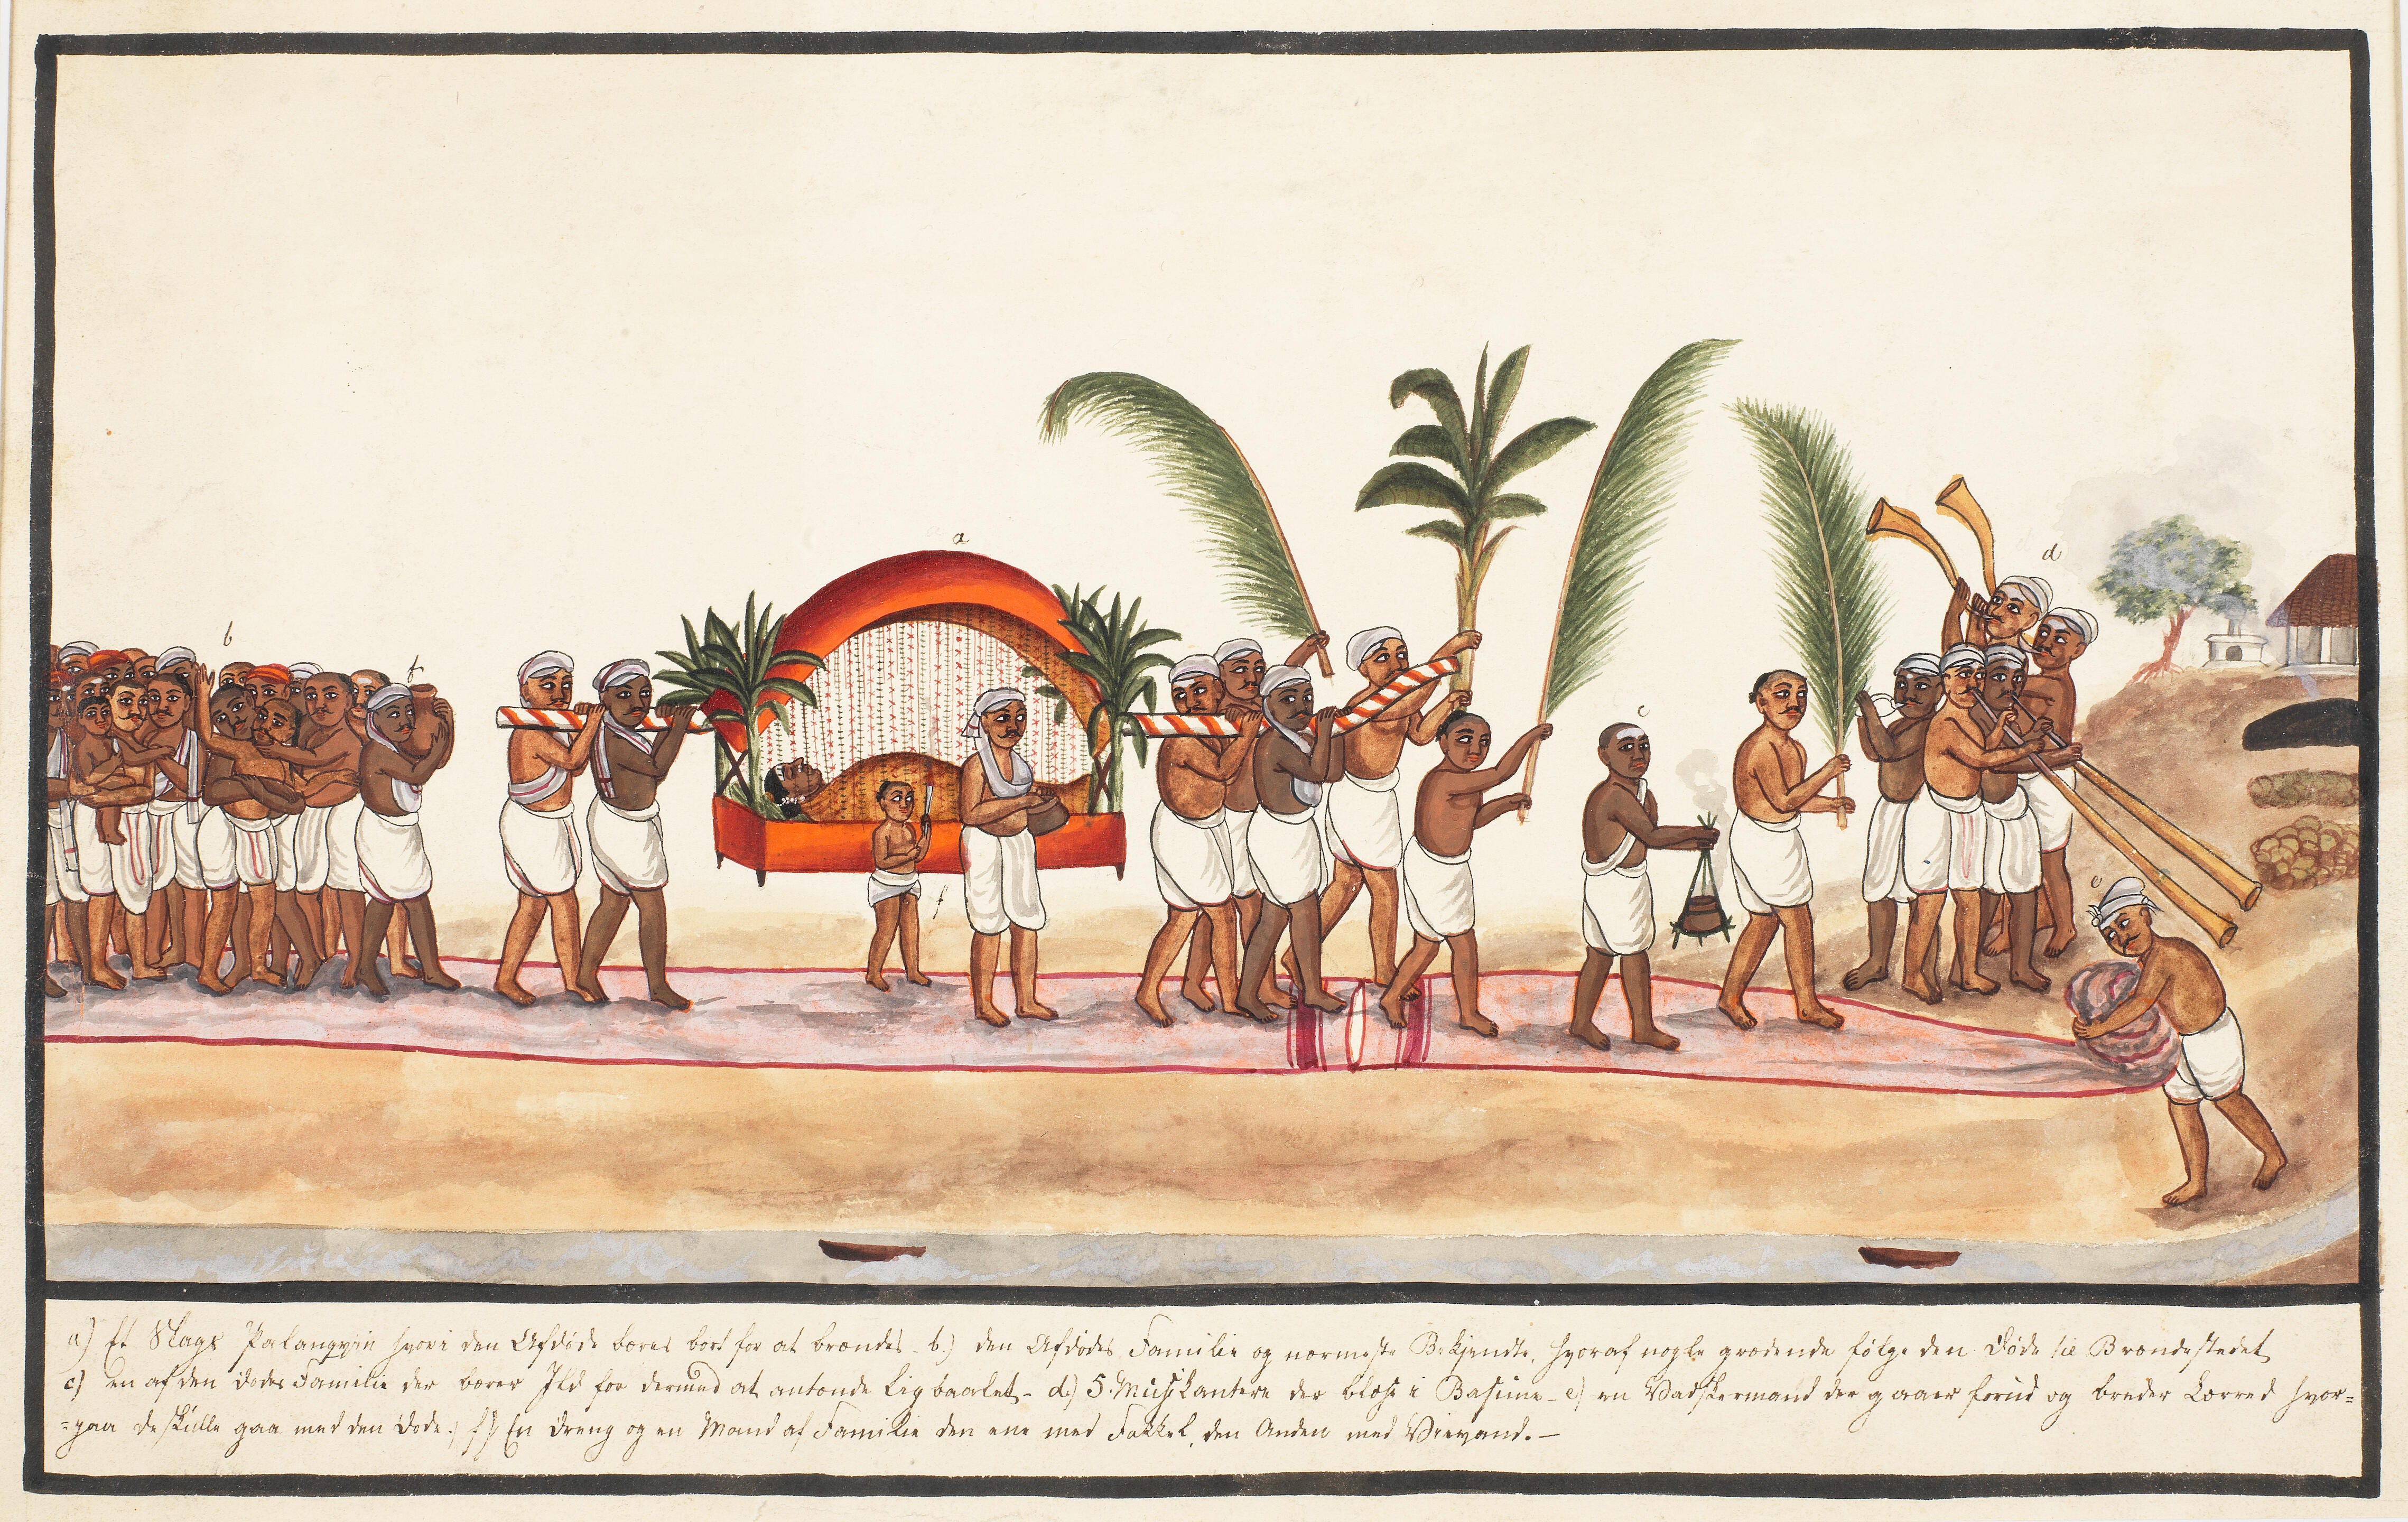 a
b
f
c
d
e
f
a) Et Slags Palanqvin hvori den Afdøde bæres bort for at brændes - b.) den Afdødes Familie og nærmeste Bekjendte, hvoraf nogle grædende følge den Døde til Brændestedet
c) en af den Dødes Familie der bærer Ild for dermed at antænde Ligbaalet - d.) 5 Musikantere der blæse i Basune - e) en Vadskermand der gaaer forud og breder Lærred hvor=
=paa de skulle gaa med den Døde.) f) En Dreng og en Mand af Familie den ene med Fakkel, den Anden med Vievand. -